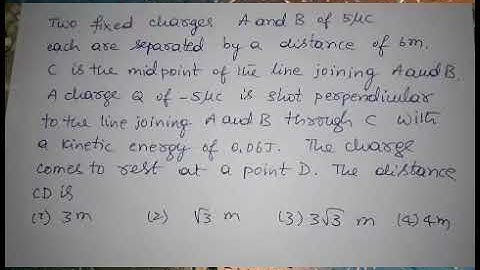 Two fixed charges A and B of 5μC
each are separated by a distance of 6m.
C is the midpoint of the line joining A and B.
A charge Q of -5μC is shot perpendicular
to the line joining A and B through C with
a kinetic energy of 0.06J. The charge
comes to rest at a point D. The distance
CD is
(1) 3m (2) √3 m (3) 3√3 m (4) 4m